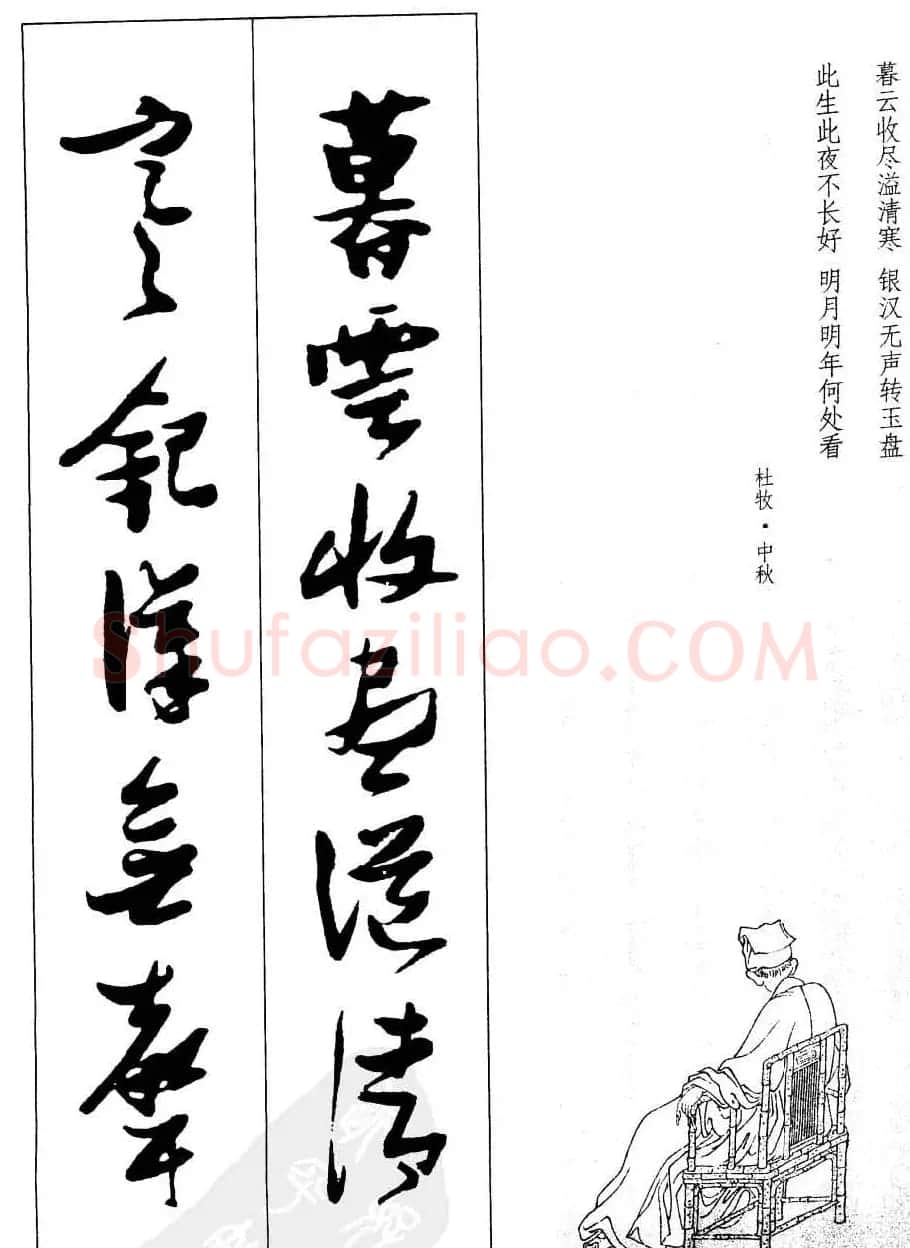 暮云收尽溢清寒 银汉无声转玉盘
此生此夜不长好 明月明年何处看
杜牧·中秋
暮雲收盡溢清
寒銀漢無聲
Shufaziliao.COM